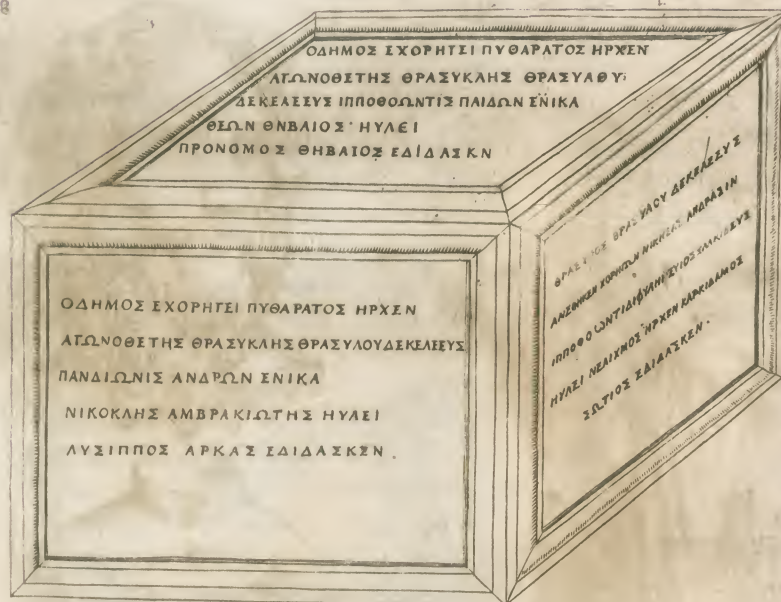 ΟΔΗΜΟΣ ΕΧΟΡΗΓΕΙ ΠΥΘΑΡΑΤΟΣ ΗΡΧΕΝ
ΑΓΩΝΟΘΕΤΗΣ ΘΡΑΣΥΚΛΗΣ
ΔΕΚΕΛΕΕΥΣ ΙΠΠΟΘΟΩΝΤΙΣ ΠΑΙΔΩΝ ΕΝΙΚΑ
ΘΕΩΝ ΘΝΒΑΙΟΣ ΗΥΛΕΙ
ΠΡΟΝΟΜΟΣ ΘΗΒΑΙΟΣ ΕΔΙΔΑΣΚΝ
ΟΔΗΜΟΣ ΕΧΟΡΗΓΕΙ ΠΥΘΑΡΑΤΟΣ ΗΡΧΕΝ
ΑΓΩΝΟΘΕΤΗΣ ΘΡΑΣΥΚΛΗΣ ΘΡΑΣΥΛΟΥ ΔΕΚΕΛΕΕΥΣ
ΠΑΝΔΙΩΝΙΣ ΑΝΔΡΩΝ ΕΝΙΚΑ
ΝΙΚΟΚΛΗΣ ΑΜΒΡΑΚΙΩΤΗΣ ΗΥΛΕΙ
ΛΥΣΙΠΠΟΣ ΑΡΚΑΣ ΕΔΙΔΑΣΚΕΝ.
ΘΡΑΣΥΛΟΥ ΔΕΚΕΛΕΕΥΣ
ΑΝΕΘΗΚΕΝ ΧΟΡΗΓΩΝ ΝΙΚΗΣΑΣ ΑΝΔΡΑΣΙΝ
ΗΥΛΕΙ ΝΕΑΙΧΜΟΣ ΗΡΧΕΝ ΚΑΡΚΙΔΑΜΟΣ
ΣΩΤΙΟΣ ΕΔΙΔΑΣΚΕΝ.